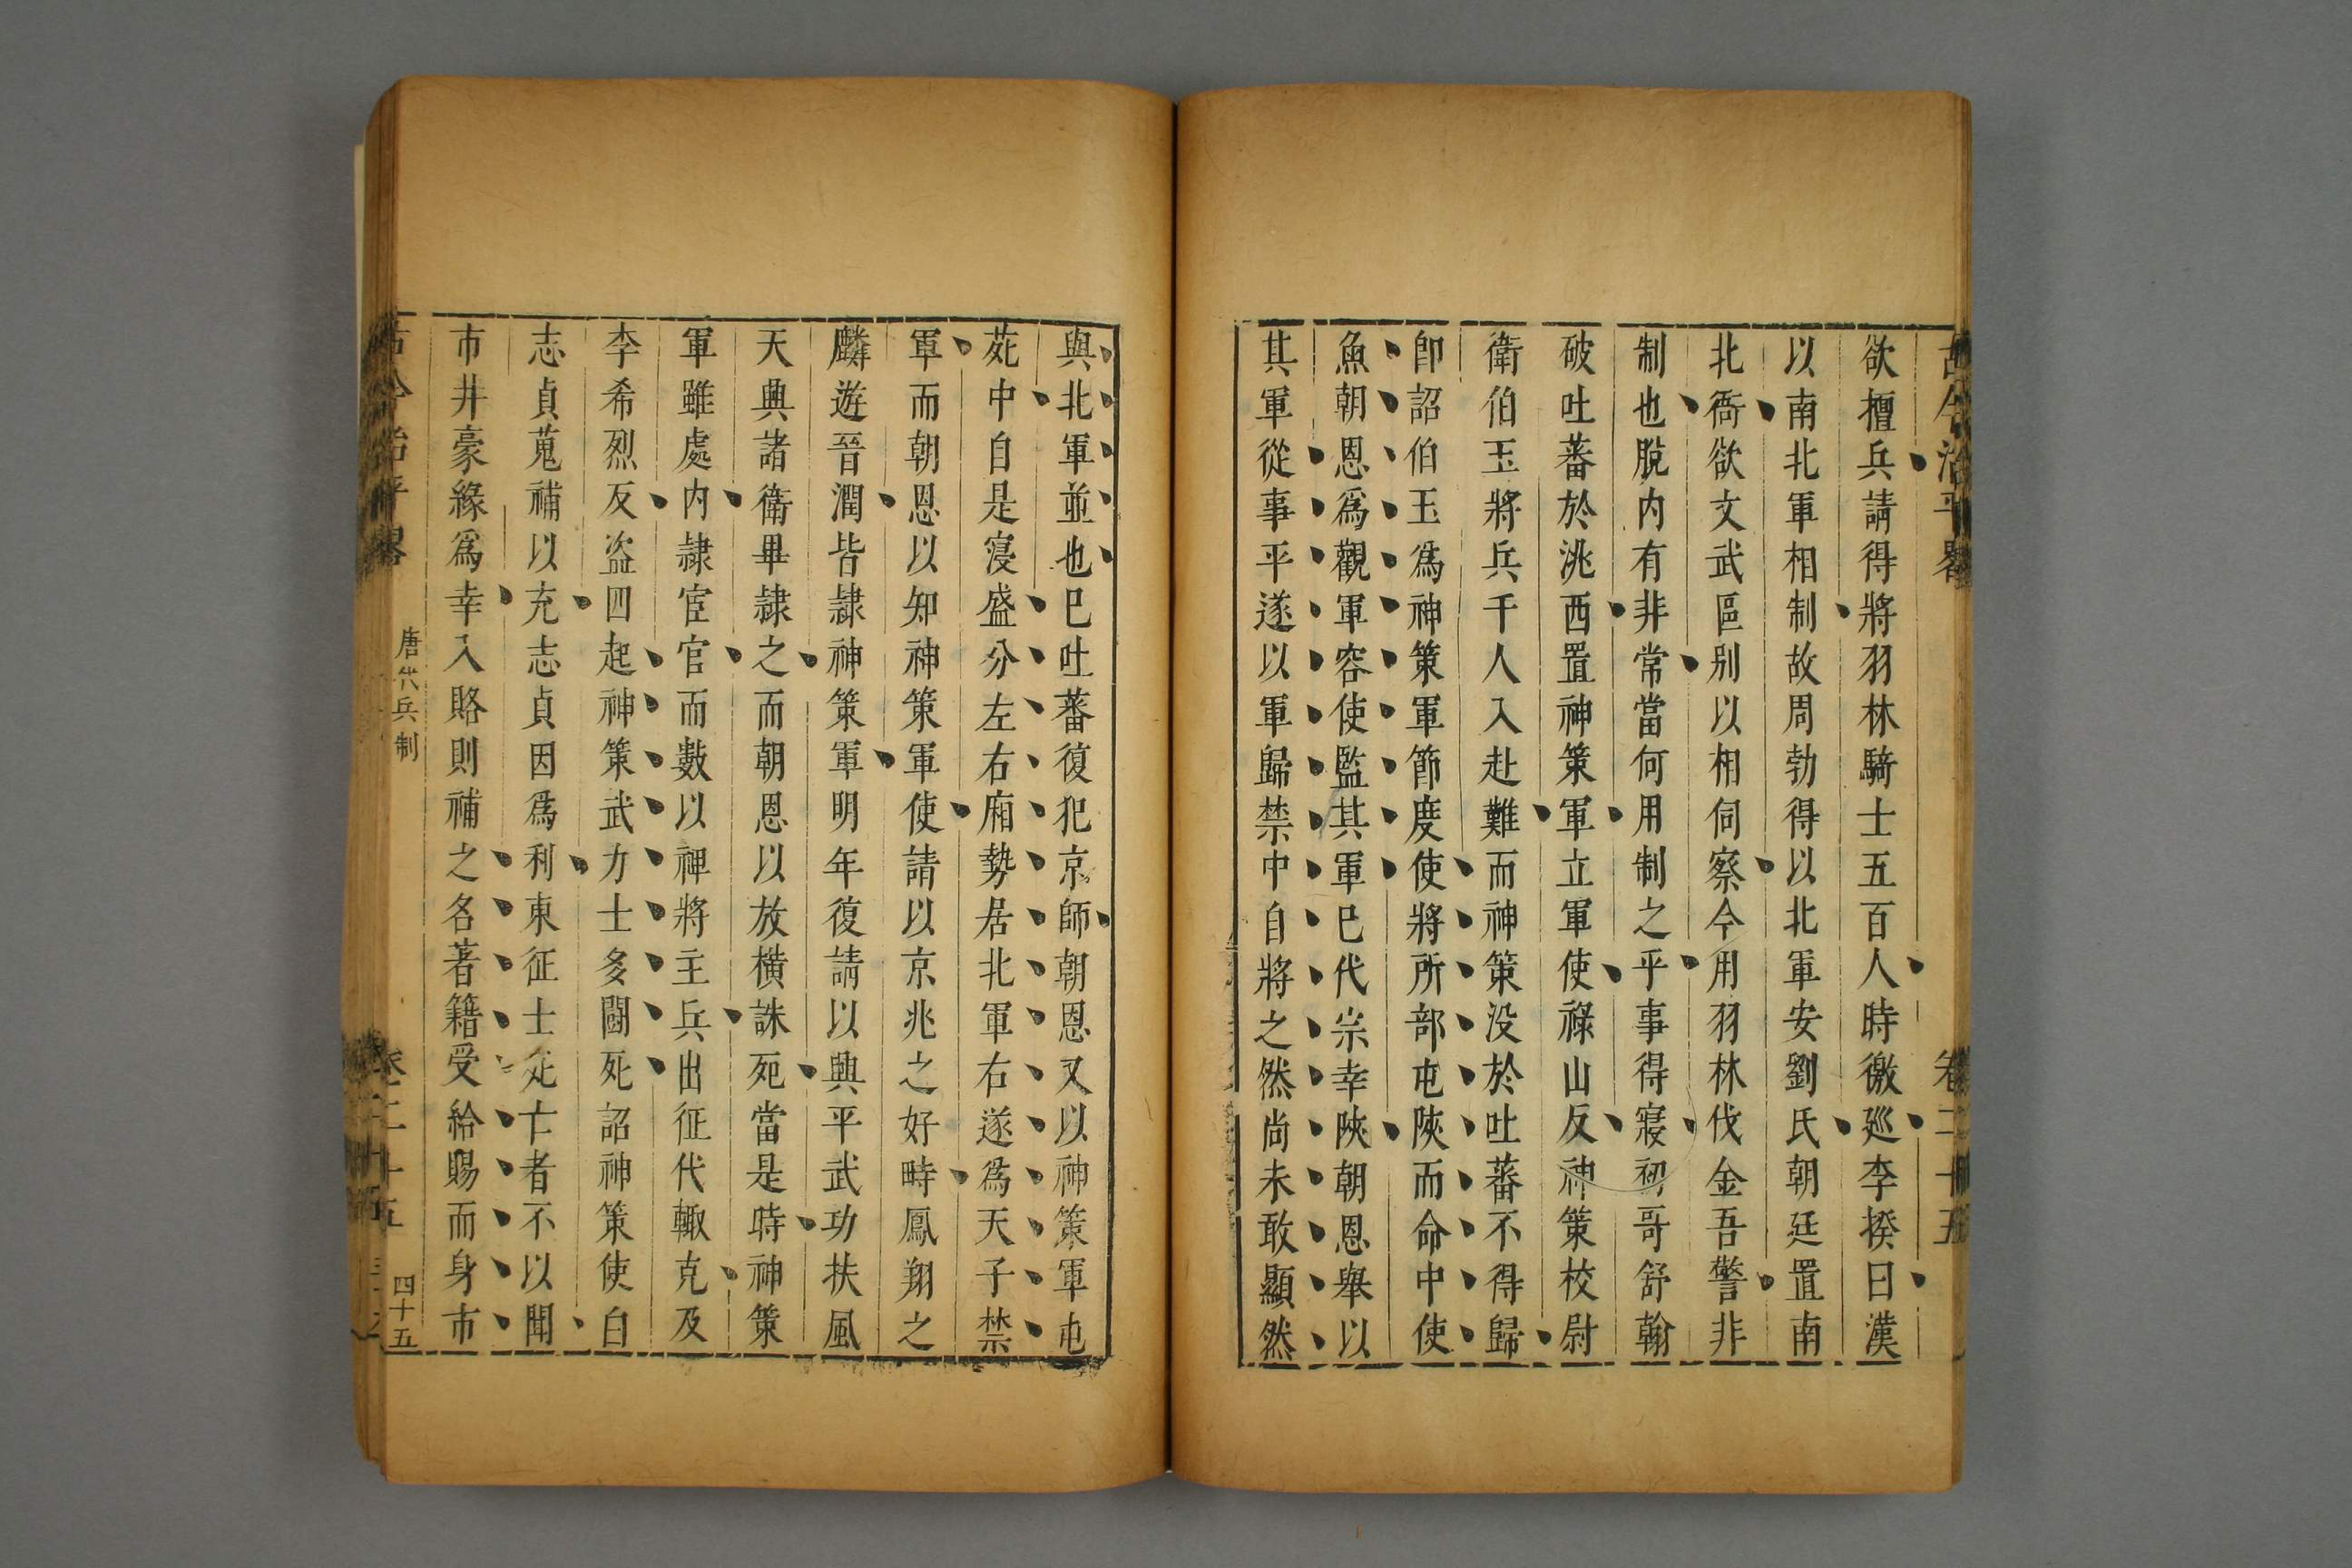 古今治平畧 卷二十五
欲擅兵請得將羽林騎士五百人時徼廵李揆曰漢
以南北軍相制故周勃得以北軍安劉氏朝廷置南
北衙欲文武區别以相伺察今用羽林伐金吾警非
制也脱内有非常當何用制之乎事得寢初哥舒翰
破吐蕃於洮西置神策軍立軍使祿山反神策校尉
衛伯玉將兵千人入赴難而神策没於吐蕃不得歸
卽詔伯玉爲神策軍節度使將所部屯陜而命中使
魚朝恩爲觀軍容使監其軍巳代宗幸陜朝恩舉以
其軍從事平遂以軍歸禁中自將之然尚未敢顯然
與北軍並也巳吐蕃復犯京師朝恩又以神策軍屯
苑中自是寖盛分左右廂勢居北軍右遂爲天子禁
軍而朝恩以知神策軍使請以京兆之好畤鳳翔之
麟遊晉潤皆隷神策軍明年復請以興平武功扶風
天興諸衛畢隷之而朝恩以放横誅死當是時神策
軍雖處内隷宦官而數以裨將主兵出征代輙克及
李希烈反盗四起神策武力士多鬭死詔神策使白
志貞蒐補以充志貞因爲利東征士死亡者不以聞
市井豪緣爲幸入賂則補之名著籍受給賜而身市
古今治平畧 唐代兵制 卷二十五 四十五